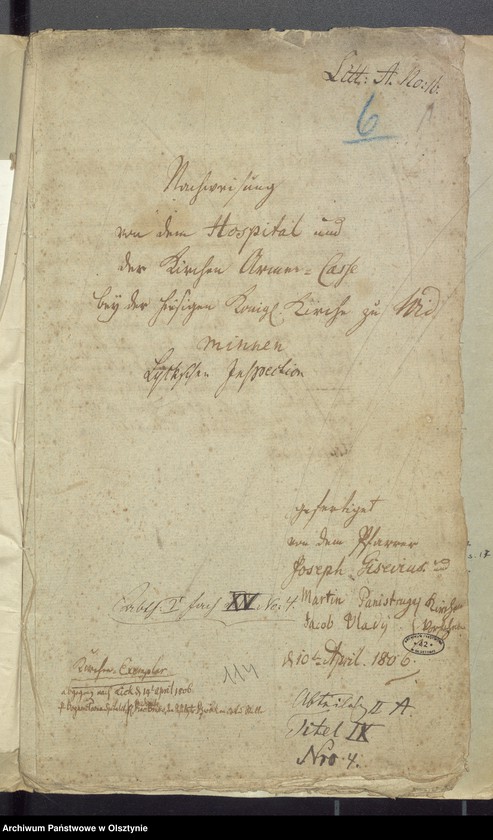 Litt: A. No: 16.
6
Nachweisung
von dem Hospital und
der Kirchen Armen=Casse
bey der hiesigen Königl. Kirche zu Wid
minnen
Lyckschen Inspection
gefertiget
von dem Pfarrer
Joseph Gisevius und
Martin Panistrugy Kirchen
Jacob Vlavy Vorsteher
d 10ten April. 1806.
Fach XV No. 4.
114
Kirchen-Exemplar
abgegang nach Lick d 19t April 1806.
Abtheilung II A.
Titel IX
Nro 4.
42
Archiwum Państwowe w Olsztynie